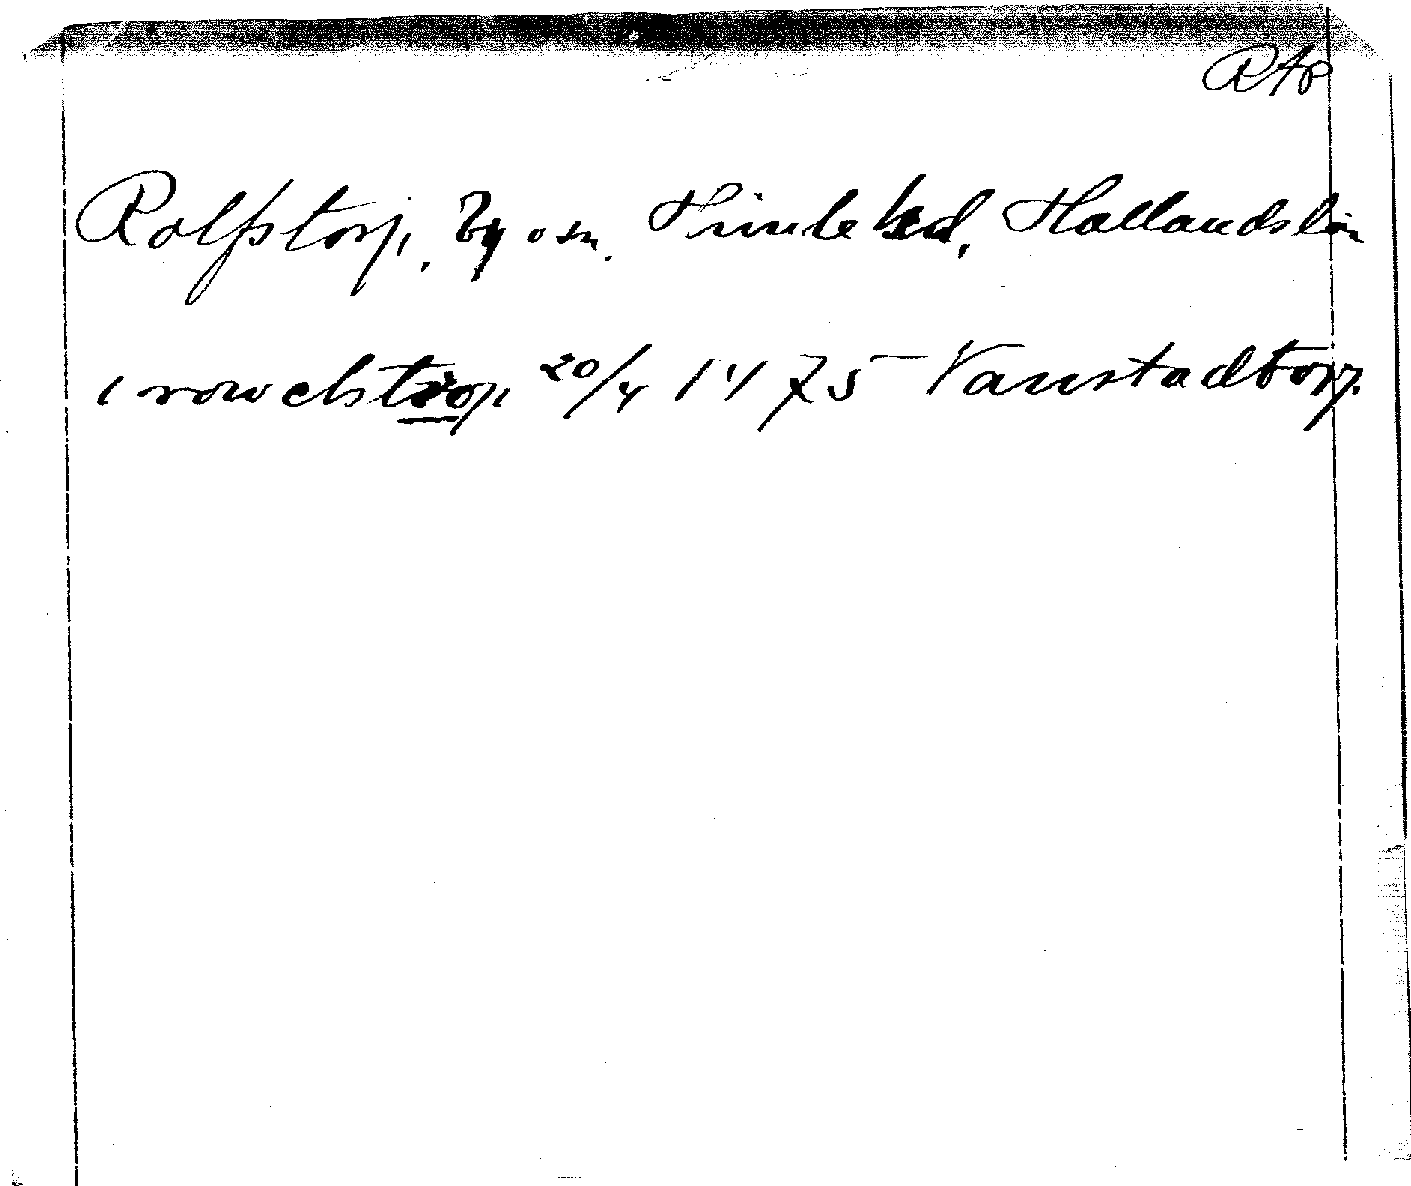 RAÄ
Rolfstorp, by o sn. Himle hd, Hallands län
i rowelstrop 20/4 1475 Vanstadtorp.